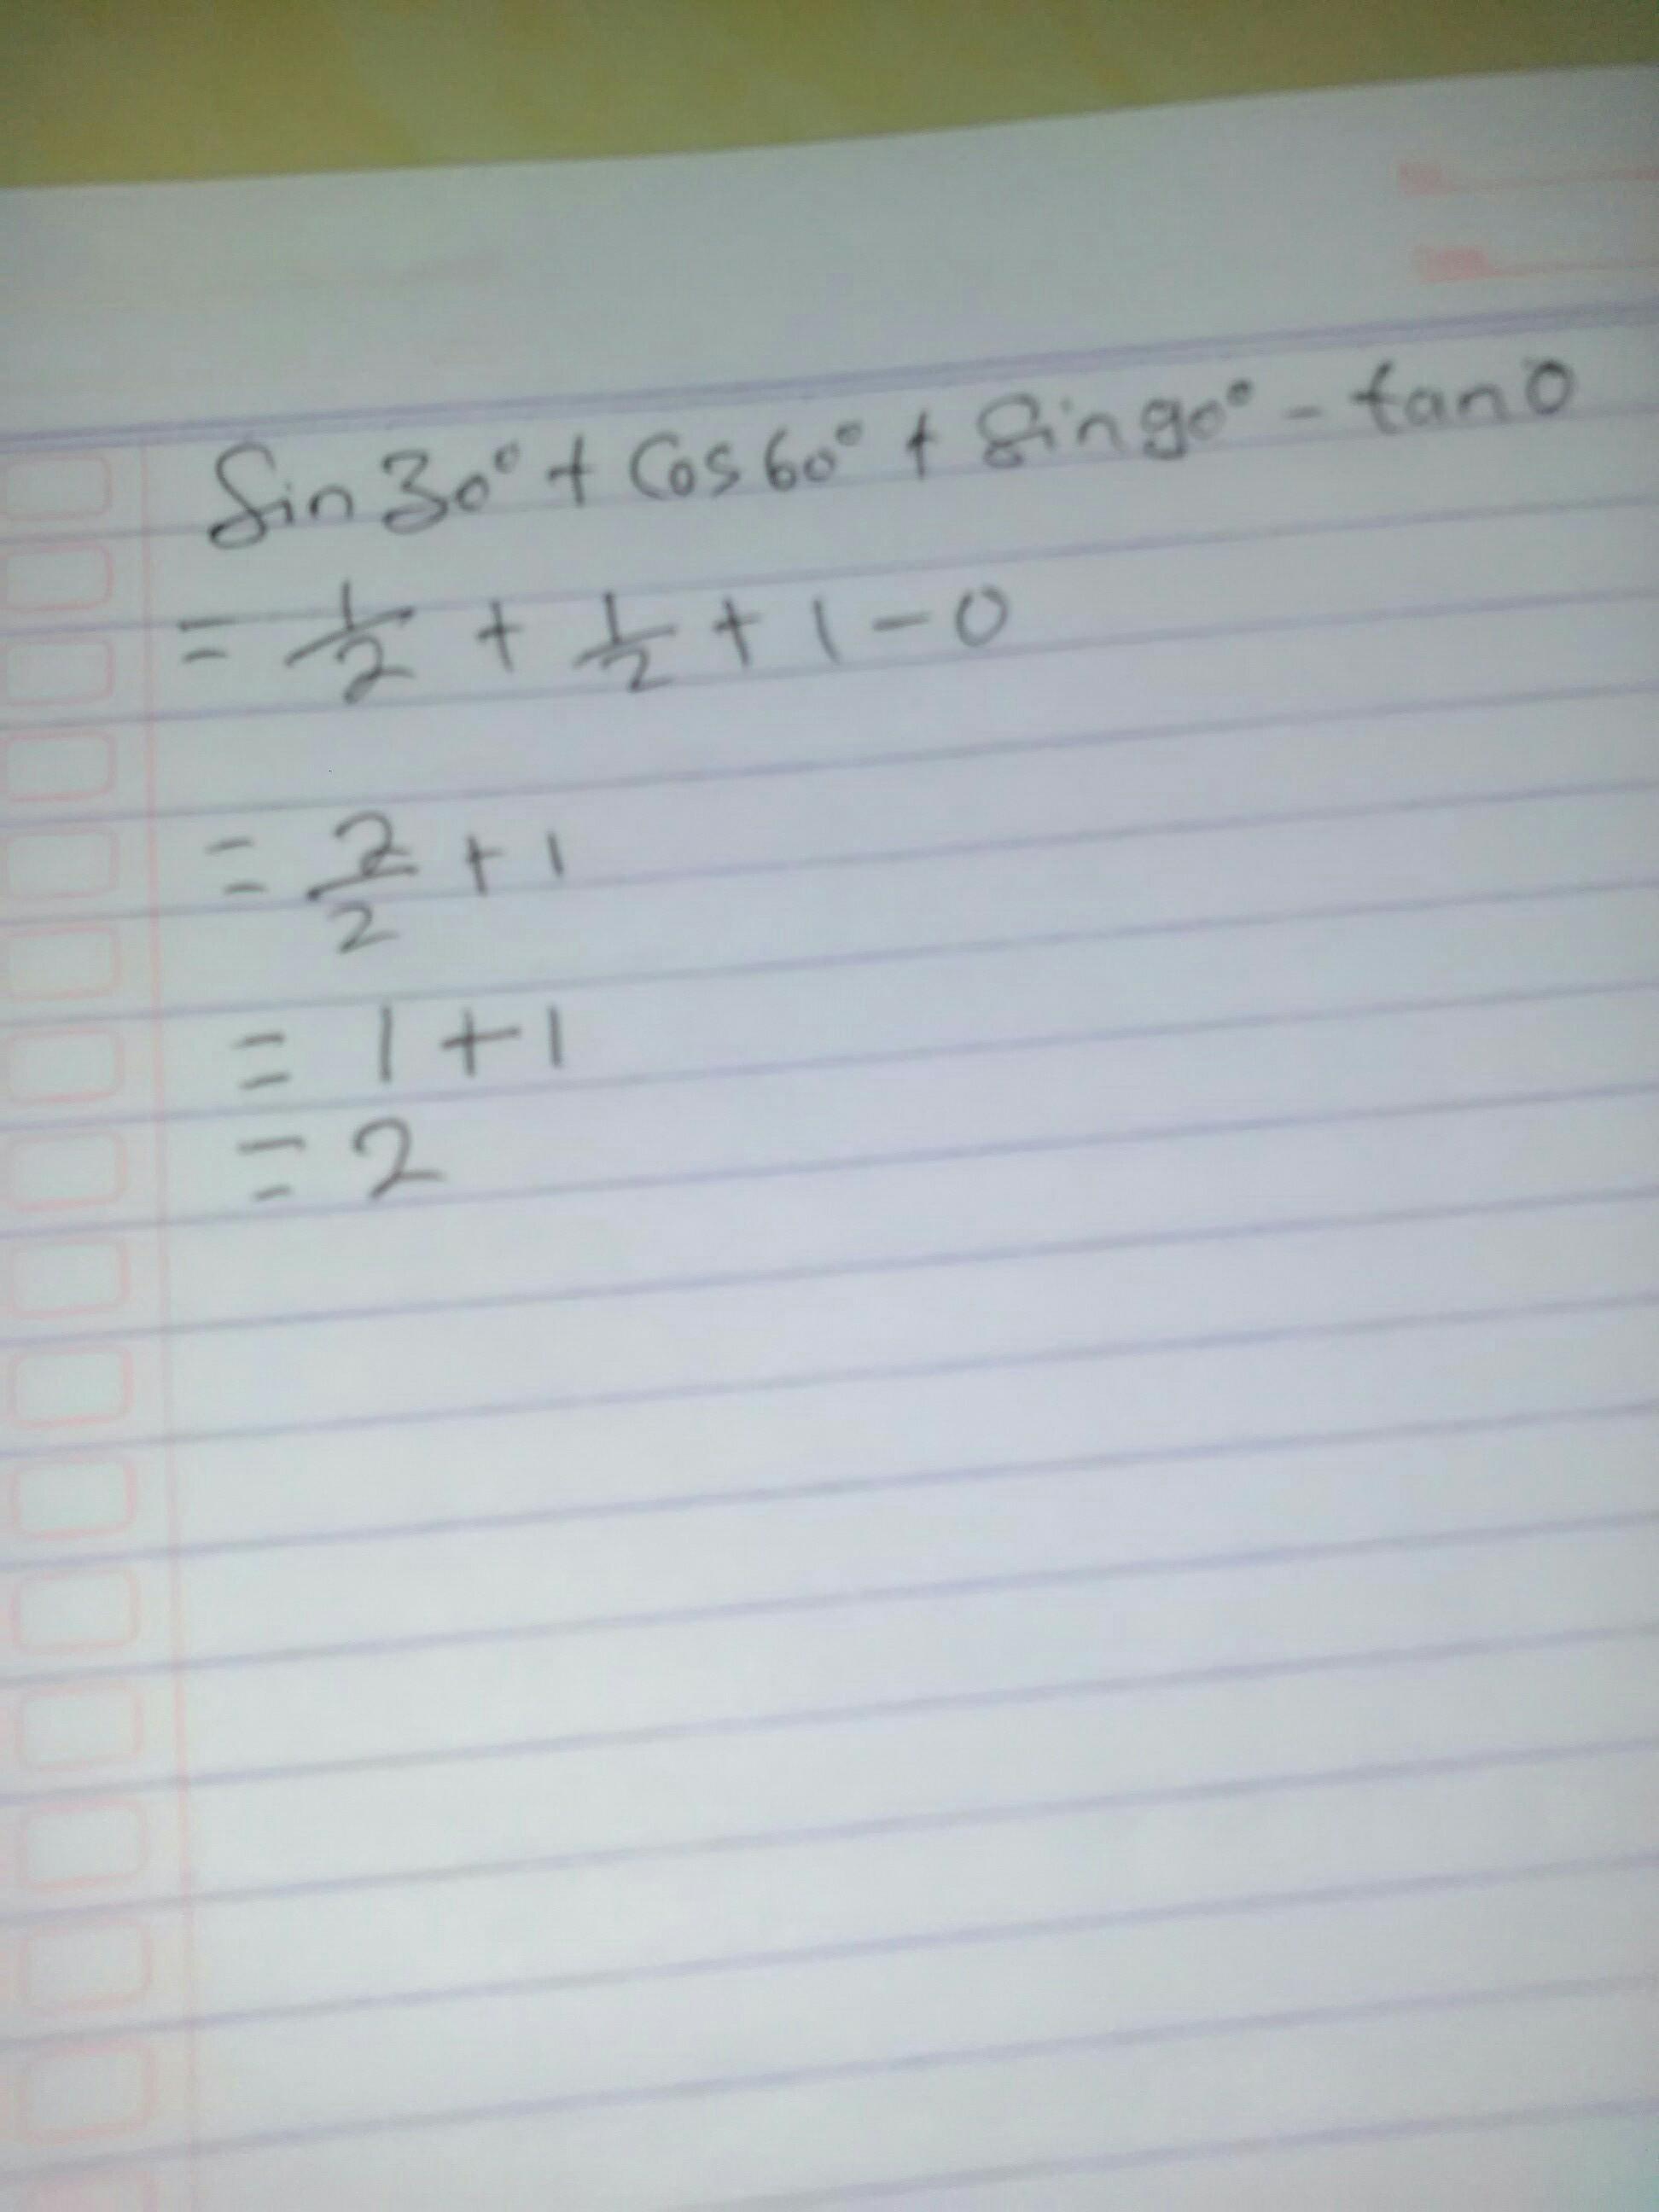 Sin 30° + Cos 60° + Sin 90° - tan 0
= 1/2 + 1/2 + 1 - 0
= 2/2 + 1
= 1 + 1
= 2